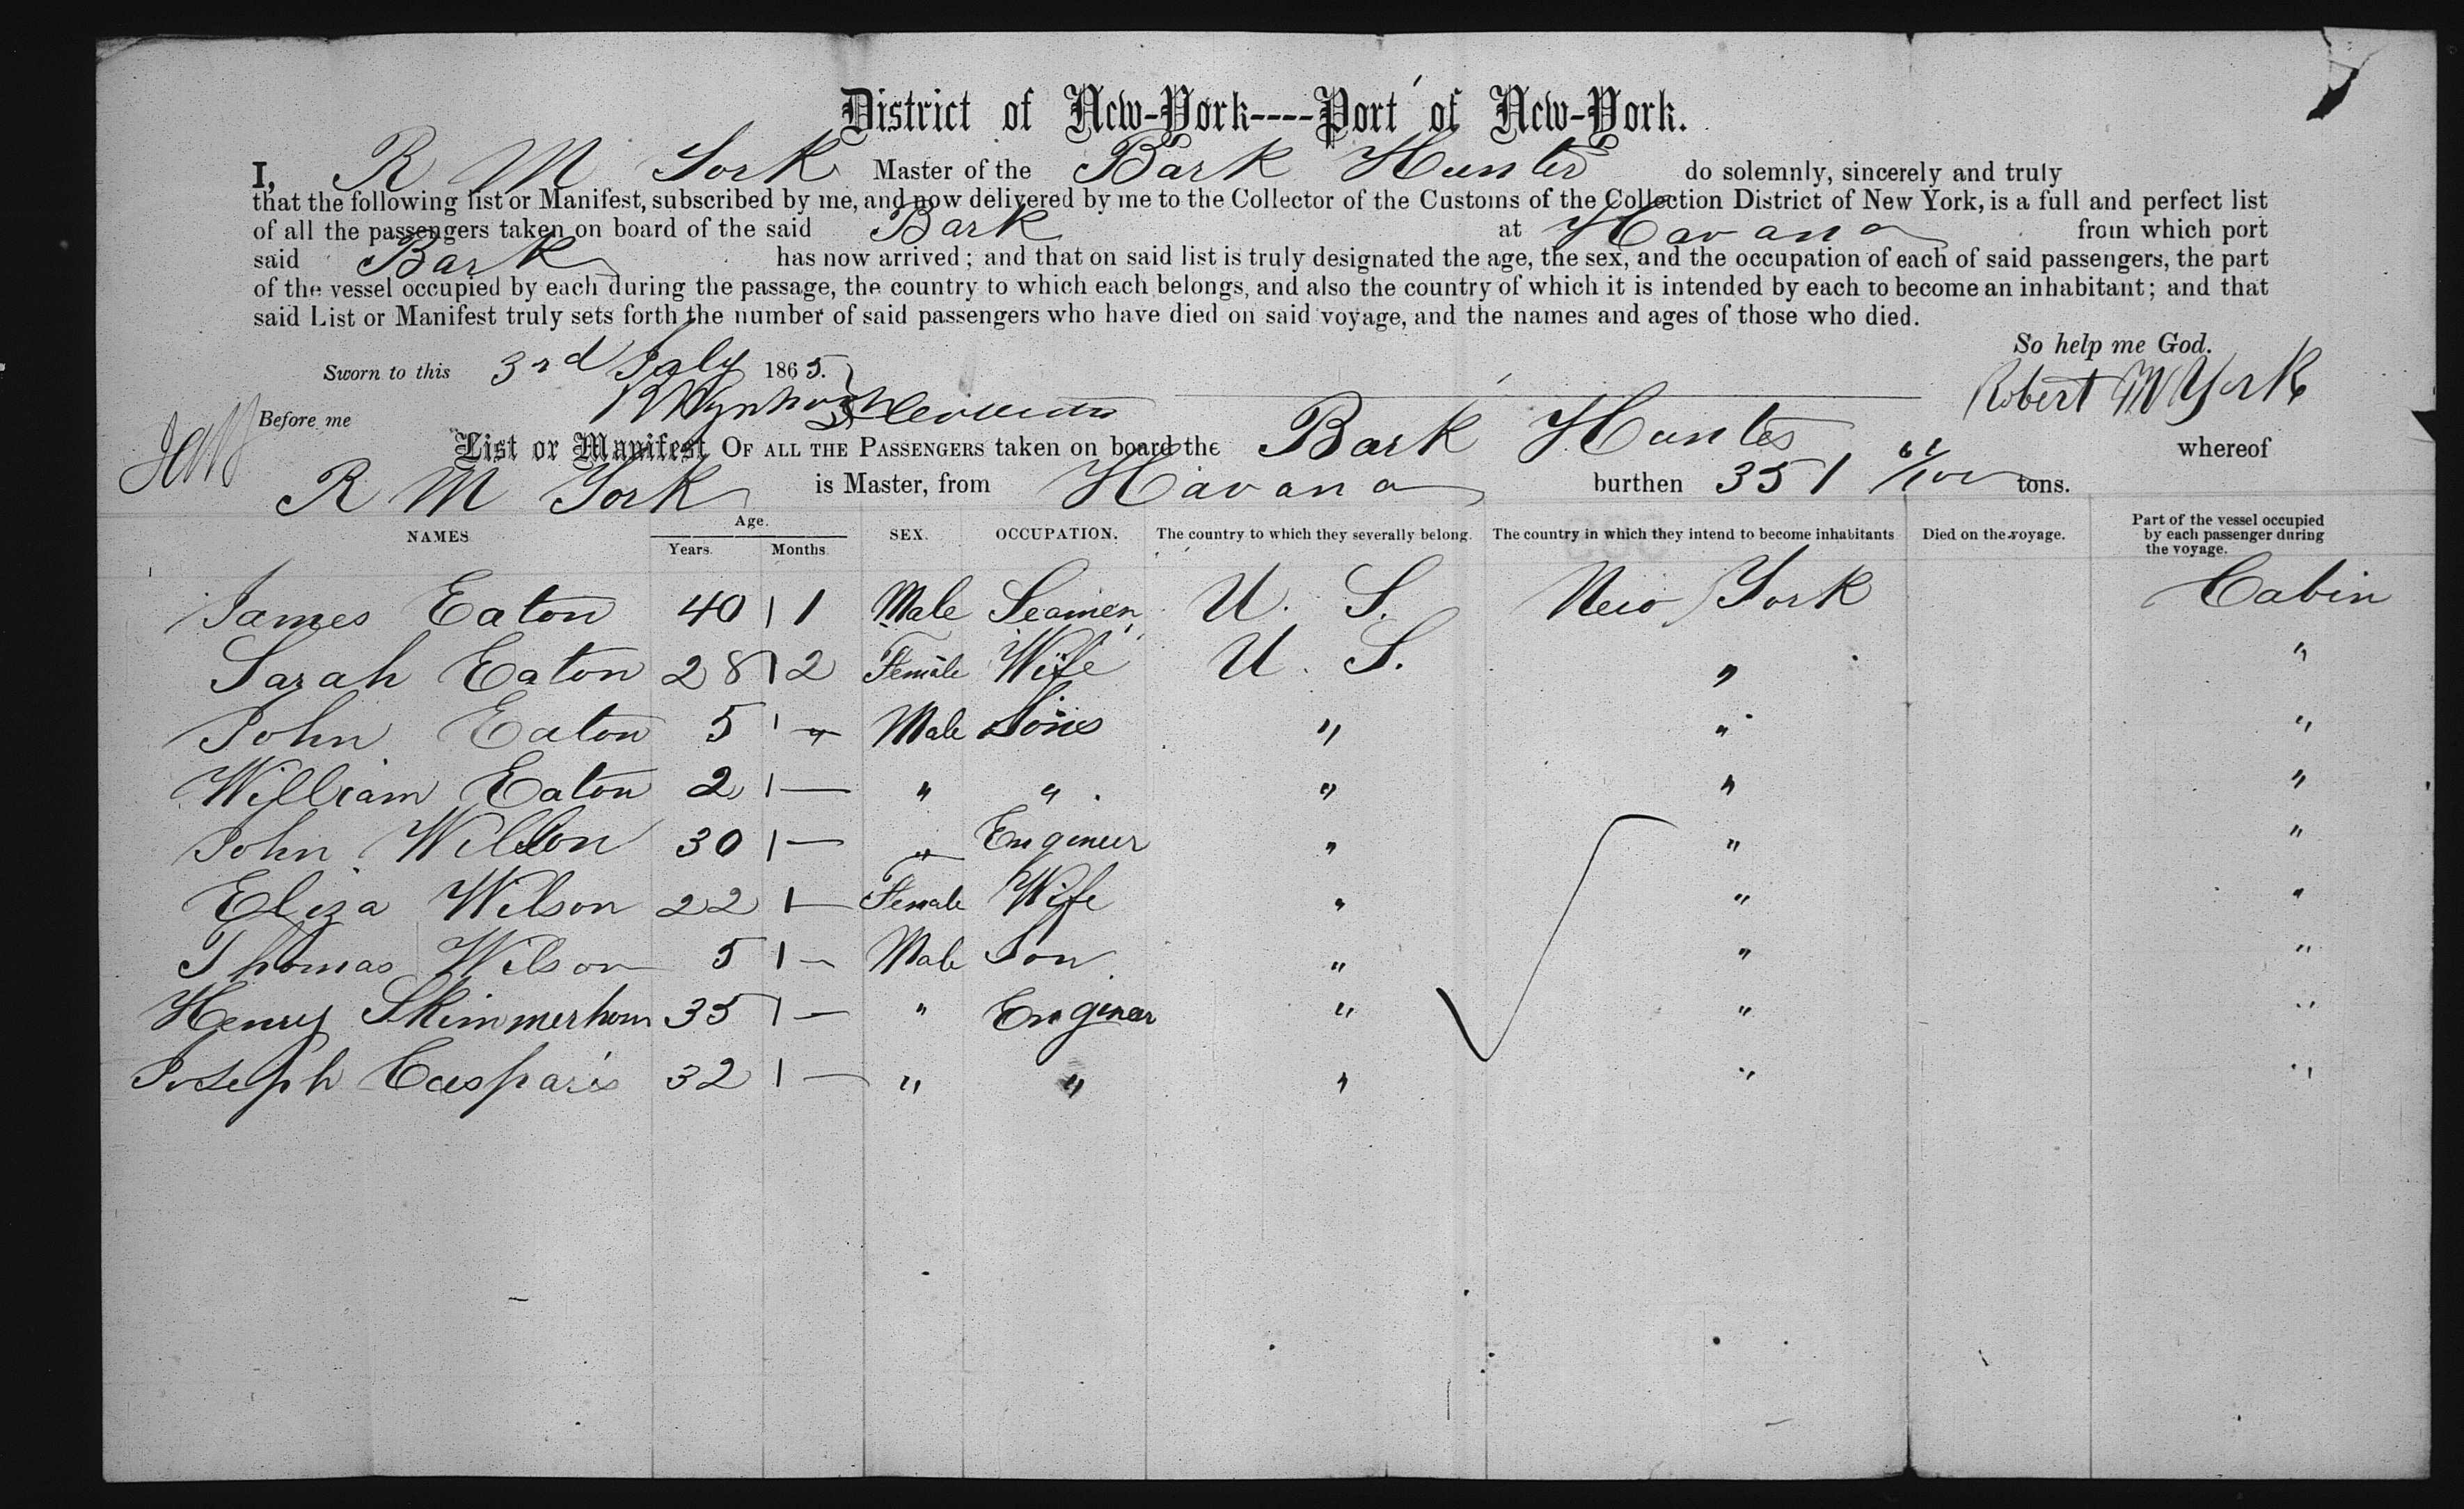 District of New-York----Port of New-York.
I, R M York Master of the Bark Hunter do solemnly, sincerely and truly
that the following list or Manifest, subscribed by me, and now delivered by me to the Collector of the Customs of the Collection District of New York, is a full and perfect list
of all the passengers taken on board of the said Bark at Havana from which port
said Bark has now arrived; and that on said list is truly designated the age, the sex, and the occupation of each of said passengers, the part
of the vessel occupied by each during the passage, the country to which each belongs, and also the country of which it is intended by each to become an inhabitant; and that
said List or Manifest truly sets forth the number of said passengers who have died on said voyage, and the names and ages of those who died.
So help me God.
Sworn to this 3rd July 1865.
Robert M York
Before me
List or Manifest OF ALL THE PASSENGERS taken on board the Bark Hunter whereof
R M York is Master, from Havana burthen 351 61/100 tons.
NAMES Age. Years. Months. SEX. OCCUPATION. The country to which they severally belong. The country in which they intend to become inhabitants Died on the voyage. Part of the vessel occupied by each passenger during the voyage.
James Eaton 40 1 Male Seamen U. S. New York Cabin
Sarah Eaton 28 2 Female Wife U. S. " "
John Eaton 5 " Male Sons " " "
William Eaton 2 — " " " " "
John Wilson 30 — " Engineer " " "
Eliza Wilson 22 — Female Wife " " "
Thomas Wilson 5 — Male Son " " "
Henry Skimmerhorn 35 — " Enginer " " "
Joseph Casparis 32 — " " " " "